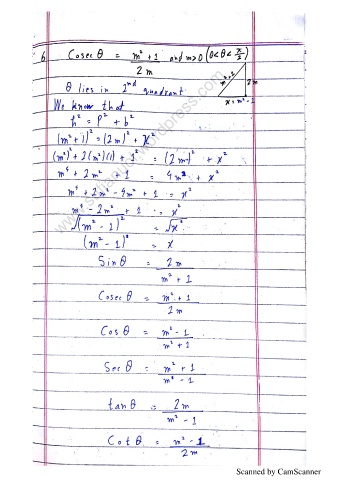 6 Cosec θ = m² + 1 / 2m and m>0 (0<θ<π/2)
m²+1
2m
x = m² - 1
θ lies in 2nd quadrant
We know that
h² = P² + b²
(m²+1)² = (2m)² + x²
(m²)² + 2(m²)(1) + 1² = (2m)² + x²
m⁴ + 2m² + 1 = 4m² + x²
m⁴ + 2m² - 4m² + 1 = x²
m⁴ - 2m² + 1 = x²
√(m² - 1)² = √x²
(m² - 1)² = x
Sin θ = 2m / m² + 1
Cosec θ = m² + 1 / 2m
Cos θ = m² - 1 / m² + 1
Sec θ = m² + 1 / m² - 1
tan θ = 2m / m² - 1
Cot θ = m² - 1 / 2m
Scanned by CamScanner